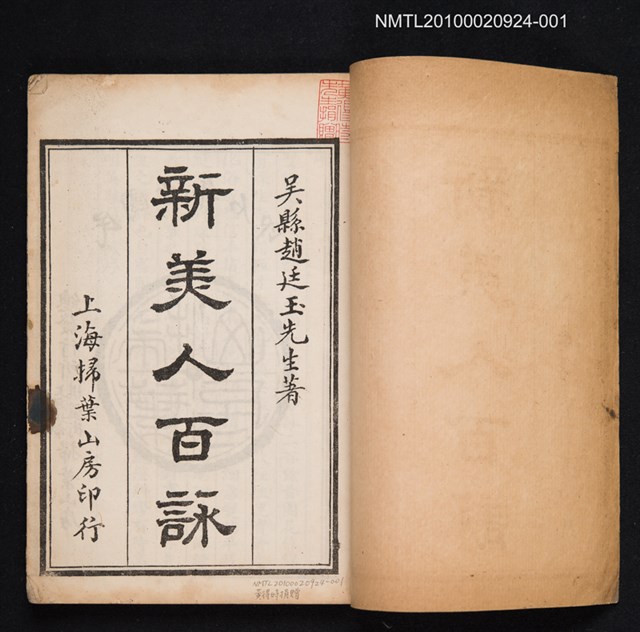 NMTL20100020924-001
吴縣趙廷玉先生著
新美人百詠
上海掃葉山房印行
NMTL20100020924-001